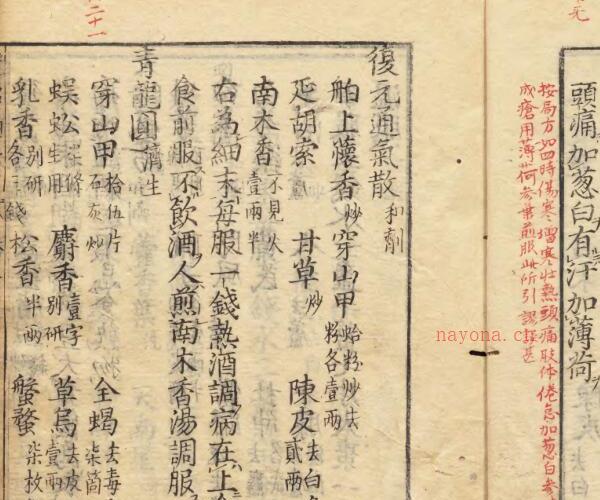 頭痛加葱白有汗加薄荷
按局方如四時傷寒壯熱頭痛肢体倦怠加葱白
成瘡用薄荷煎服此所引謬甚
二十一
復元通氣散 和劑
舶上蘹香 炒 穿山甲 蛤粉炒去粉各壹兩
延胡索 甘草 炒 陳皮 去白貳兩
南木香 不見火壹兩半
右為細末每服一錢熱酒調病在上
食前服不飲酒人煎南木香湯調服
青龍圓 濟生
穿山甲 拾伍片石灰炒 全蝎 去毒柒箇
蜈蚣 柒條生用 麝香 壹字別研 草烏 去皮壹兩
乳香 別研各三錢 松香 半兩 蟹蝥 柒枚
nayona.cn